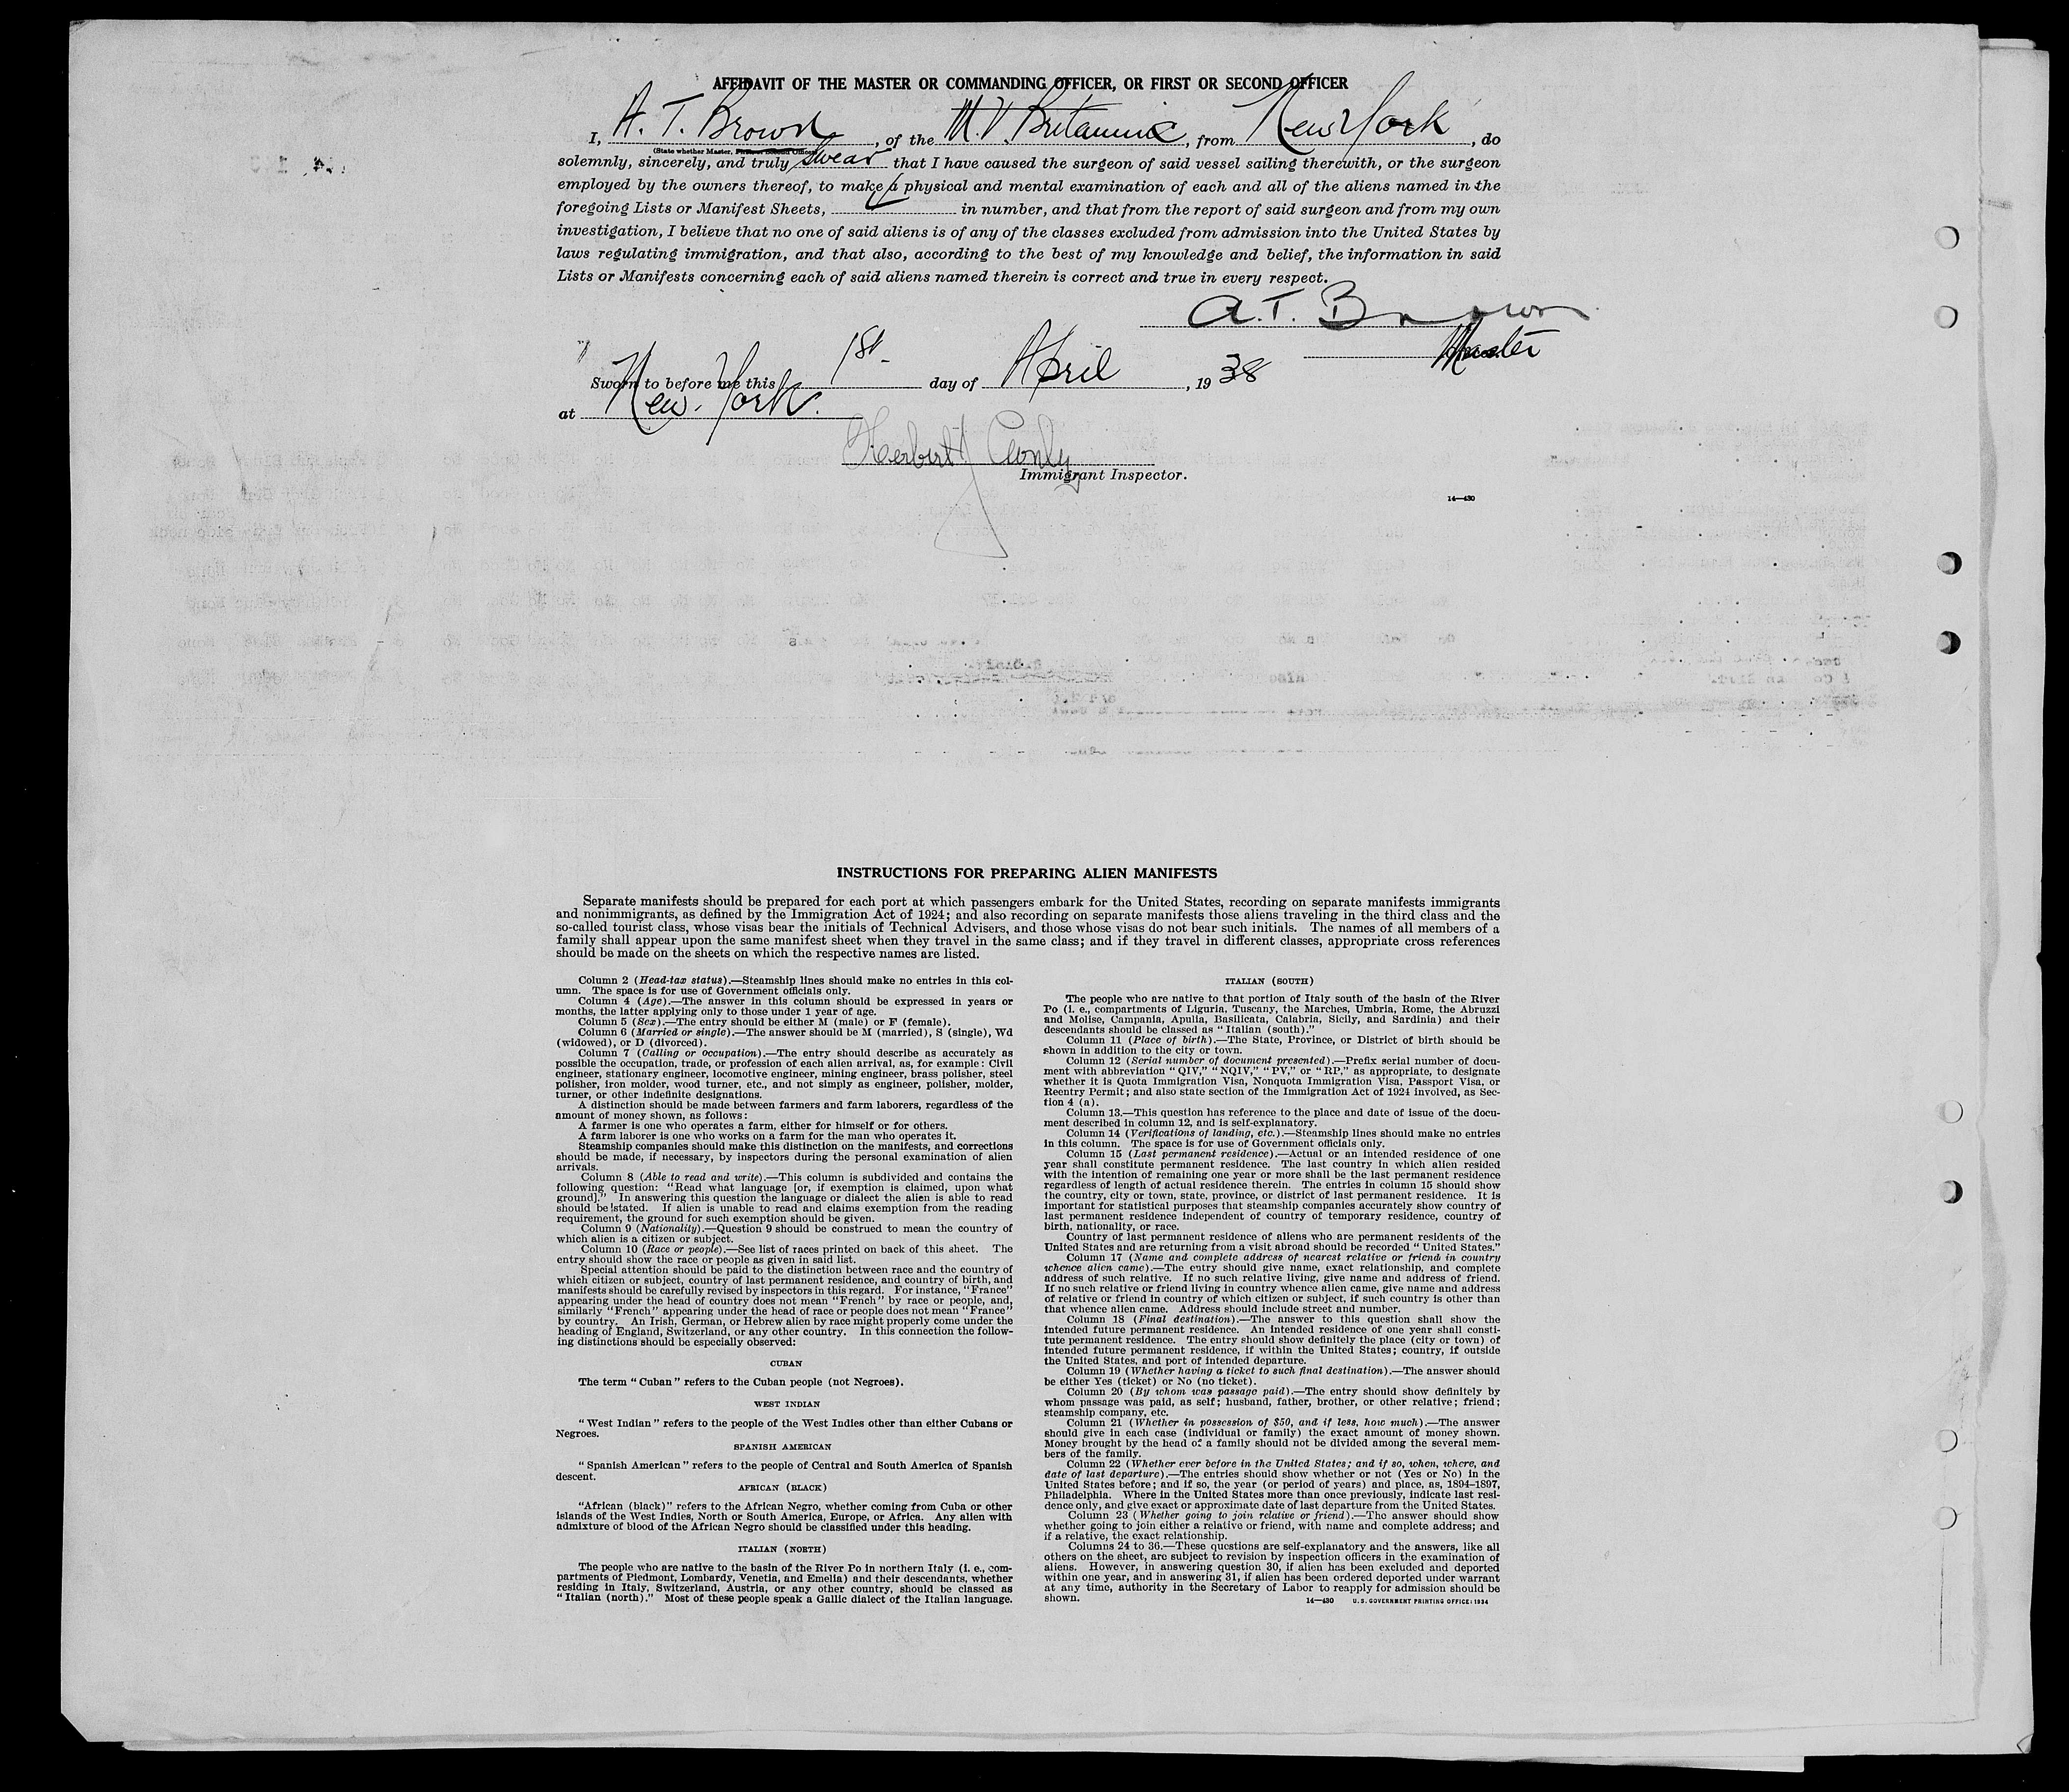 AFFIDAVIT OF THE MASTER OR COMMANDING OFFICER, OR FIRST OR SECOND OFFICER
I, A. T. Brown, of the M.V. Britannic, from New York, do
(State whether Master, First or Second Officer)
solemnly, sincerely, and truly swear that I have caused the surgeon of said vessel sailing therewith, or the surgeon
employed by the owners thereof, to make a physical and mental examination of each and all of the aliens named in the
foregoing Lists or Manifest Sheets, in number, and that from the report of said surgeon and from my own
investigation, I believe that no one of said aliens is of any of the classes excluded from admission into the United States by
laws regulating immigration, and that also, according to the best of my knowledge and belief, the information in said
Lists or Manifests concerning each of said aliens named therein is correct and true in every respect.
A. T. Brown
Master
Sworn to before me this 1st day of April, 1938
at New York.
Herbert
Immigrant Inspector.
14—430
INSTRUCTIONS FOR PREPARING ALIEN MANIFESTS
Separate manifests should be prepared for each port at which passengers embark for the United States, recording on separate manifests immigrants
and nonimmigrants, as defined by the Immigration Act of 1924; and also recording on separate manifests those aliens traveling in the third class and the
so-called tourist class, whose visas bear the initials of Technical Advisers, and those whose visas do not bear such initials. The names of all members of a
family shall appear upon the same manifest sheet when they travel in the same class; and if they travel in different classes, appropriate cross references
should be made on the sheets on which the respective names are listed.
Column 2 (Head-tax status).—Steamship lines should make no entries in this col-
umn. The space is for use of Government officials only.
Column 4 (Age).—The answer in this column should be expressed in years or
months, the latter applying only to those under 1 year of age.
Column 5 (Sex).—The entry should be either M (male) or F (female).
Column 6 (Married or single).—The answer should be M (married), S (single), Wd
(widowed), or D (divorced).
Column 7 (Calling or occupation).—The entry should describe as accurately as
possible the occupation, trade, or profession of each alien arrival, as, for example: Civil
engineer, stationary engineer, locomotive engineer, mining engineer, brass polisher, steel
polisher, iron molder, wood turner, etc., and not simply as engineer, polisher, molder,
turner, or other indefinite designations.
A distinction should be made between farmers and farm laborers, regardless of the
amount of money shown, as follows:
A farmer is one who operates a farm, either for himself or for others.
A farm laborer is one who works on a farm for the man who operates it.
Steamship companies should make this distinction on the manifests, and corrections
should be made, if necessary, by inspectors during the personal examination of alien
arrivals.
Column 8 (Able to read and write).—This column is subdivided and contains the
following question: "Read what language [or, if exemption is claimed, upon what
ground]." In answering this question the language or dialect the alien is able to read
should be stated. If alien is unable to read and claims exemption from the reading
requirement, the ground for such exemption should be given.
Column 9 (Nationality).—Question 9 should be construed to mean the country of
which alien is a citizen or subject.
Column 10 (Race or people).—See list of races printed on back of this sheet. The
entry should show the race or people as given in said list.
Special attention should be paid to the distinction between race and the country of
which citizen or subject, country of last permanent residence, and country of birth, and
manifests should be carefully revised by inspectors in this regard. For instance, "France"
appearing under the head of country does not mean "French" by race or people, and,
similarly "French" appearing under the head of race or people does not mean "France"
by country. An Irish, German, or Hebrew alien by race might properly come under the
heading of England, Switzerland, or any other country. In this connection the follow-
ing distinctions should be especially observed:
CUBAN
The term "Cuban" refers to the Cuban people (not Negroes).
WEST INDIAN
"West Indian" refers to the people of the West Indies other than either Cubans or
Negroes.
SPANISH AMERICAN
"Spanish American" refers to the people of Central and South America of Spanish
descent.
AFRICAN (BLACK)
"African (black)" refers to the African Negro, whether coming from Cuba or other
islands of the West Indies, North or South America, Europe, or Africa. Any alien with
admixture of blood of the African Negro should be classified under this heading.
ITALIAN (NORTH)
The people who are native to the basin of the River Po in northern Italy (i. e., com-
partments of Piedmont, Lombardy, Venetia, and Emelia) and their descendants, whether
residing in Italy, Switzerland, Austria, or any other country, should be classed as
"Italian (north)." Most of these people speak a Gallic dialect of the Italian language.
ITALIAN (SOUTH)
The people who are native to that portion of Italy south of the basin of the River
Po (i. e., compartments of Liguria, Tuscany, the Marches, Umbria, Rome, the Abruzzi
and Molise, Campania, Apulia, Basilicata, Calabria, Sicily, and Sardinia) and their
descendants should be classed as "Italian (south)."
Column 11 (Place of birth).—The State, Province, or District of birth should be
shown in addition to the city or town.
Column 12 (Serial number of document presented).—Prefix serial number of docu-
ment with abbreviation "QIV," "NQIV," "PV," or "RP," as appropriate, to designate
whether it is Quota Immigration Visa, Nonquota Immigration Visa, Passport Visa, or
Reentry Permit; and also state section of the Immigration Act of 1924 involved, as Sec-
tion 4 (a).
Column 13.—This question has reference to the place and date of issue of the docu-
ment described in column 12, and is self-explanatory.
Column 14 (Verifications of landing, etc.).—Steamship lines should make no entries
in this column. The space is for use of Government officials only.
Column 15 (Last permanent residence).—Actual or an intended residence of one
year shall constitute permanent residence. The last country in which alien resided
with the intention of remaining one year or more shall be the last permanent residence
regardless of length of actual residence therein. The entries in column 15 should show
the country, city or town, state, province, or district of last permanent residence. It is
important for statistical purposes that steamship companies accurately show country of
last permanent residence independent of country of temporary residence, country of
birth, nationality, or race.
Country of last permanent residence of aliens who are permanent residents of the
United States and are returning from a visit abroad should be recorded "United States."
Column 17 (Name and complete address of nearest relative or friend in country
whence alien came).—The entry should give name, exact relationship, and complete
address of such relative. If no such relative living, give name and address of friend.
If no such relative or friend living in country whence alien came, give name and address
of relative or friend in country of which citizen or subject, if such country is other than
that whence alien came. Address should include street and number.
Column 18 (Final destination).—The answer to this question shall show the
intended future permanent residence. An intended residence of one year shall consti-
tute permanent residence. The entry should show definitely the place (city or town) of
intended future permanent residence, if within the United States; country, if outside
the United States, and port of intended departure.
Column 19 (Whether having a ticket to such final destination).—The answer should
be either Yes (ticket) or No (no ticket).
Column 20 (By whom was passage paid).—The entry should show definitely by
whom passage was paid, as self; husband, father, brother, or other relative; friend;
steamship company, etc.
Column 21 (Whether in possession of $50, and if less, how much).—The answer
should give in each case (individual or family) the exact amount of money shown.
Money brought by the head of a family should not be divided among the several mem-
bers of the family.
Column 22 (Whether ever before in the United States; and if so, when, where, and
date of last departure).—The entries should show whether or not (Yes or No) in the
United States before; and if so, the year (or period of years) and place, as, 1894–1897,
Philadelphia. Where in the United States more than once previously, indicate last resi-
dence only, and give exact or approximate date of last departure from the United States.
Column 23 (Whether going to join relative or friend).—The answer should show
whether going to join either a relative or friend, with name and complete address; and
if a relative, the exact relationship.
Columns 24 to 36.—These questions are self-explanatory and the answers, like all
others on the sheet, are subject to revision by inspection officers in the examination of
aliens. However, in answering question 30, if alien has been excluded and deported
within one year, and in answering 31, if alien has been ordered deported under warrant
at any time, authority in the Secretary of Labor to reapply for admission should be
shown.
14—430 U. S. GOVERNMENT PRINTING OFFICE: 1934